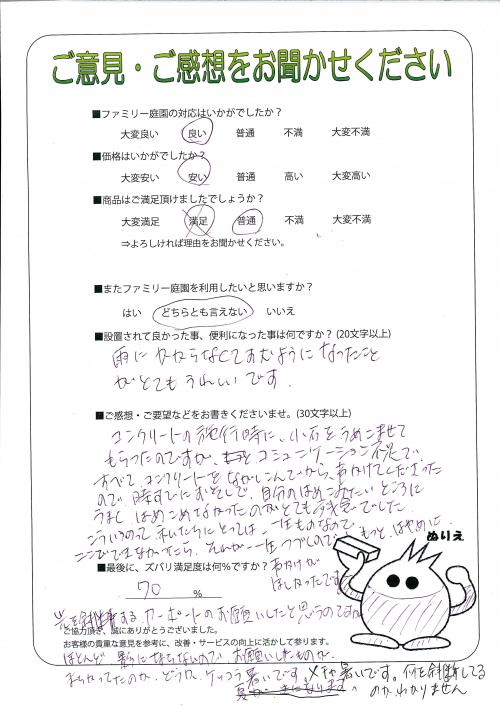 ご意見・ご感想をお聞かせください
■ファミリー庭園の対応はいかがでしたか？
大変良い 良い 普通 不満 大変不満
■価格はいかがでしたか？
大変安い 安い 普通 高い 大変高い
■商品はご満足頂けましたでしょうか？
大変満足 満足 普通 不満 大変不満
⇒よろしければ理由をお聞かせください。
■またファミリー庭園を利用したいと思いますか？
はい どちらとも言えない いいえ
■設置されて良かった事、便利になった事は何ですか？(20文字以上)
雨にかからなくてすむようになったこと
がとてもうれしいです．
■ご感想・ご要望などをお書きくださいませ。(30文字以上)
コンクリートの施行時に、小石をうめこませて
もらったのですが、コミュニケーション不足で、
すべて、コンクリートをながしこんでから、声かけてくださった
ので 時すでにおそしで、自分のはめこみたいところに
うまく はめこめなかったのがとても残念でした。
こういうのって 私たちにとっては、一生ものなので
ここでできなかったら、一生 ので もっと はやめに
声かけが
ほしかったです
■最後に、ズバリ満足度は何％ですか？
70 %
ぬりえ
光を斜断する カーポートのお願いしたと思うのですが
ご協力頂き、誠にありがとうございました。
お客様の貴重な意見を参考に、改善・サービスの向上に活かして参ります。
ほとんど 影にならないので お願いしたものが
まちがってたのか、どうか、ケッコウ 暑いです。メチャ暑いです。何を斜断してる
のか、わかりません